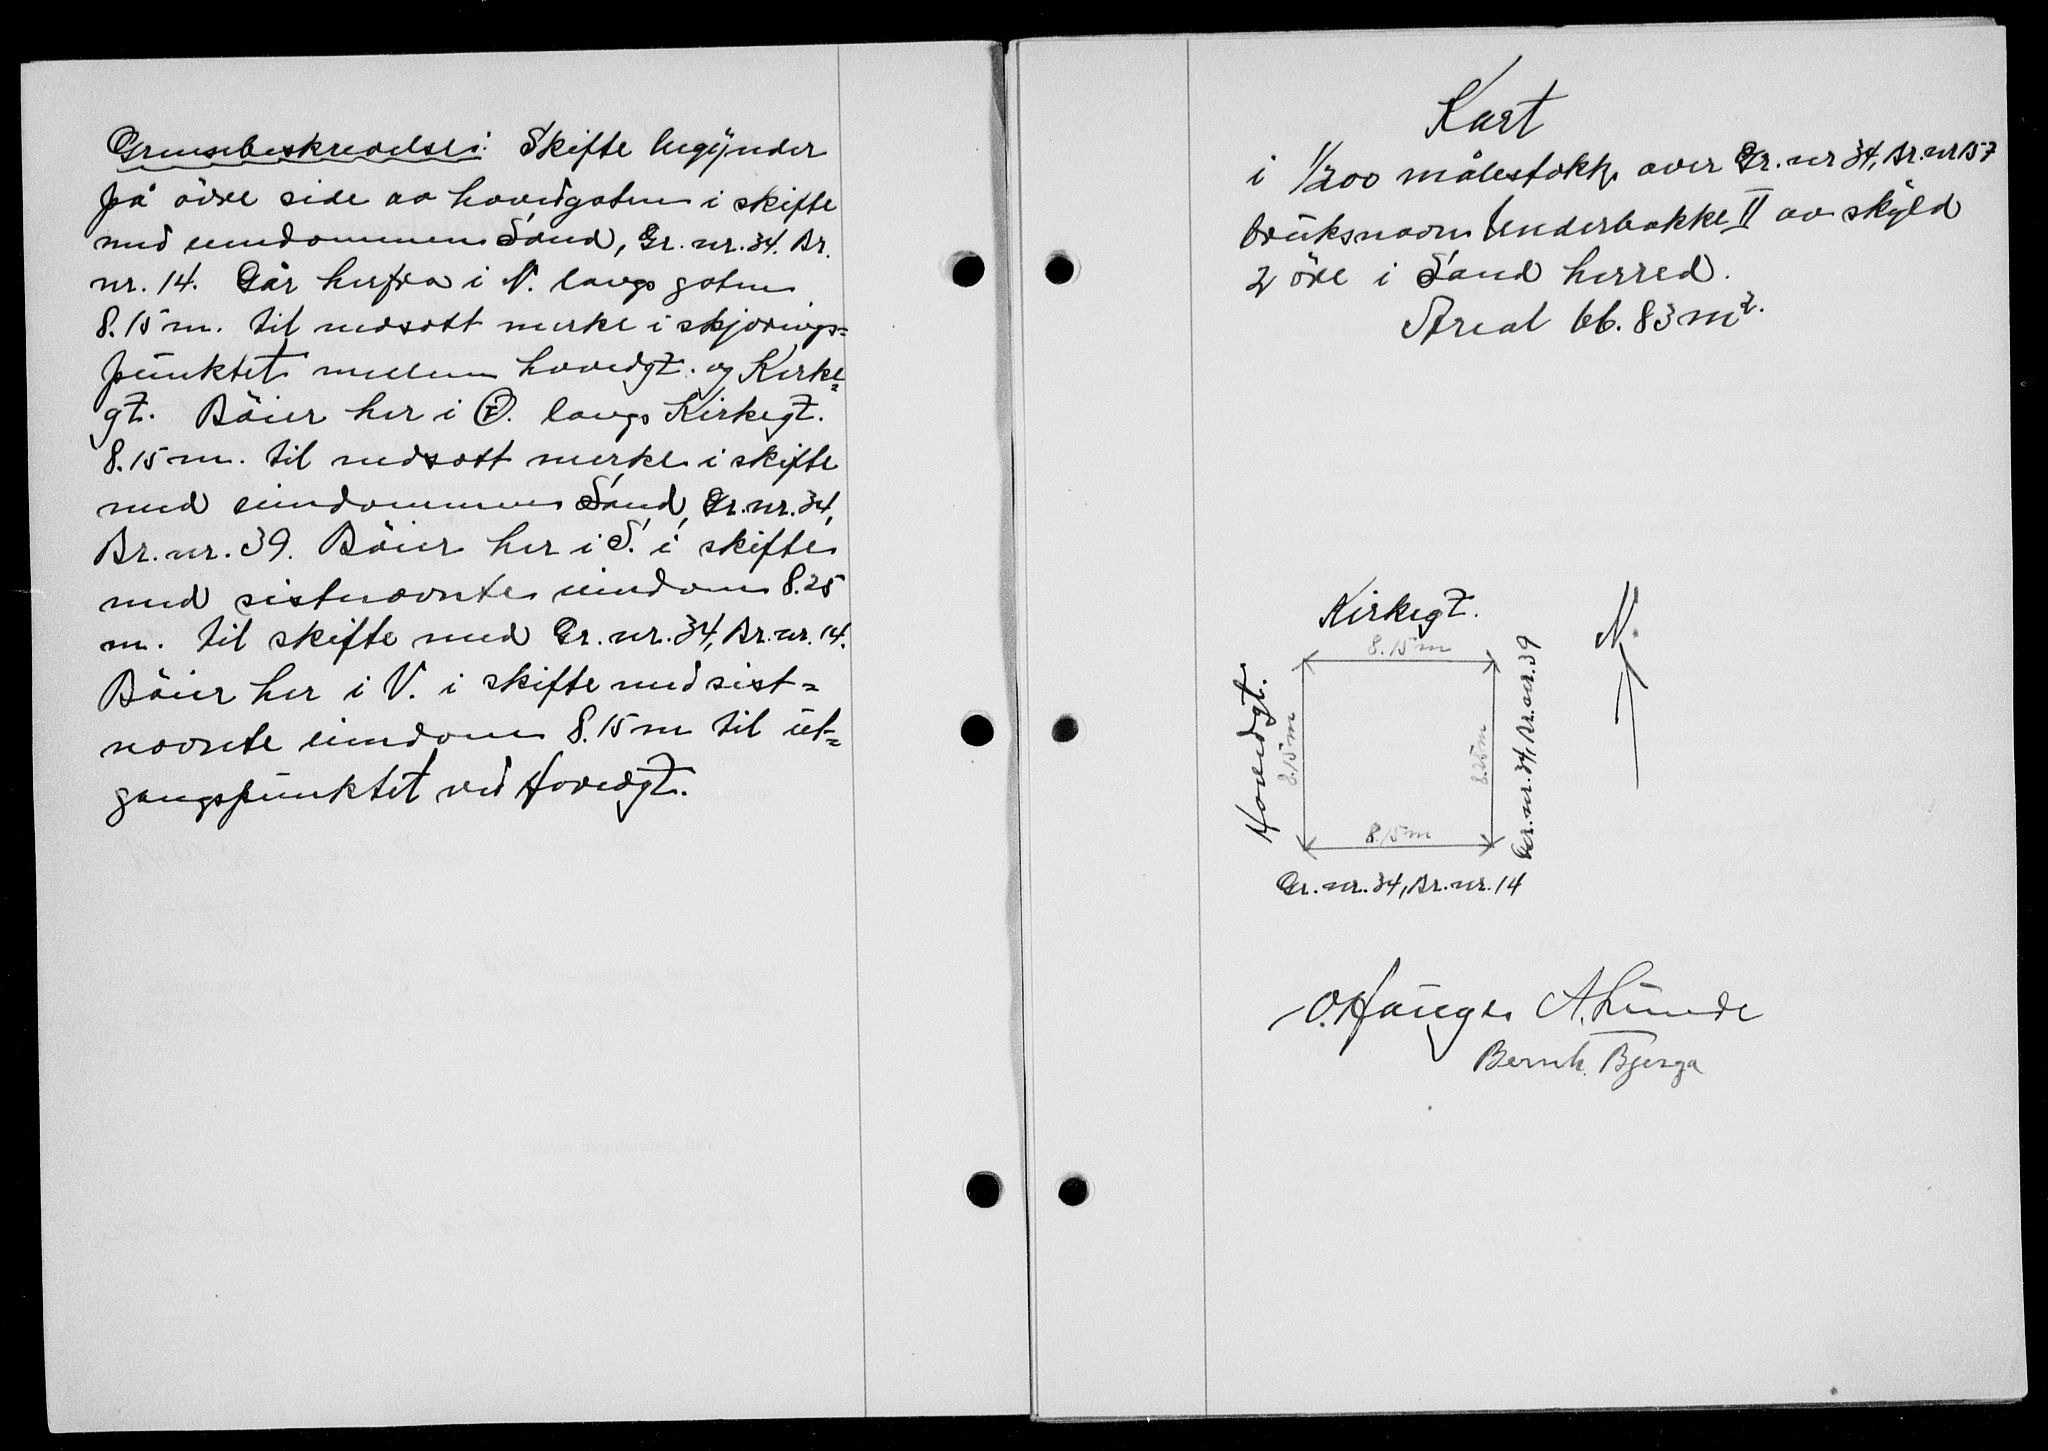 Grensebeskrivelse: Skifte begynder
på övre side av hovedgaten i skifte
med eiendommen Sand, Gr. nr. 34. Br.
nr. 14. Går herfra i N. langs gaten
8.15 m. til nedsatt merke i skjærings=
punktet mellem hovedgt. og Kirke=
gt. Böier her i Ø. langs Kirkegt.
8.15 m. til nedsatt merke i skifte
med eiendommen Sand, Gr. nr. 34,
Br. nr. 39. Böier her i S. i skifte
med sistnevnte eiendom 8.25
m. til skifte med Gr. nr. 34, Br. nr. 14.
Böier her i V. i skifte med sist=
nevnte eiendom 8.15 m til ut=
gangspunktet ved Hovedgt.
Kart
i 1/200 målestokk over Gr. nr 34, Br. nr 157
bruksnavn Underbakke II av skyld
2 öre i Sand herred.
Areal bb. 83 m².
Kirkegt.
N.
8.15 m
Hovedgt.
8.15 m
8.25 m
Gr. nr. 34, Br. nr. 39
8.15 m
Gr. nr. 34, Br. nr. 14
O. Hauge A. Lunde
Bernh. Bjerga